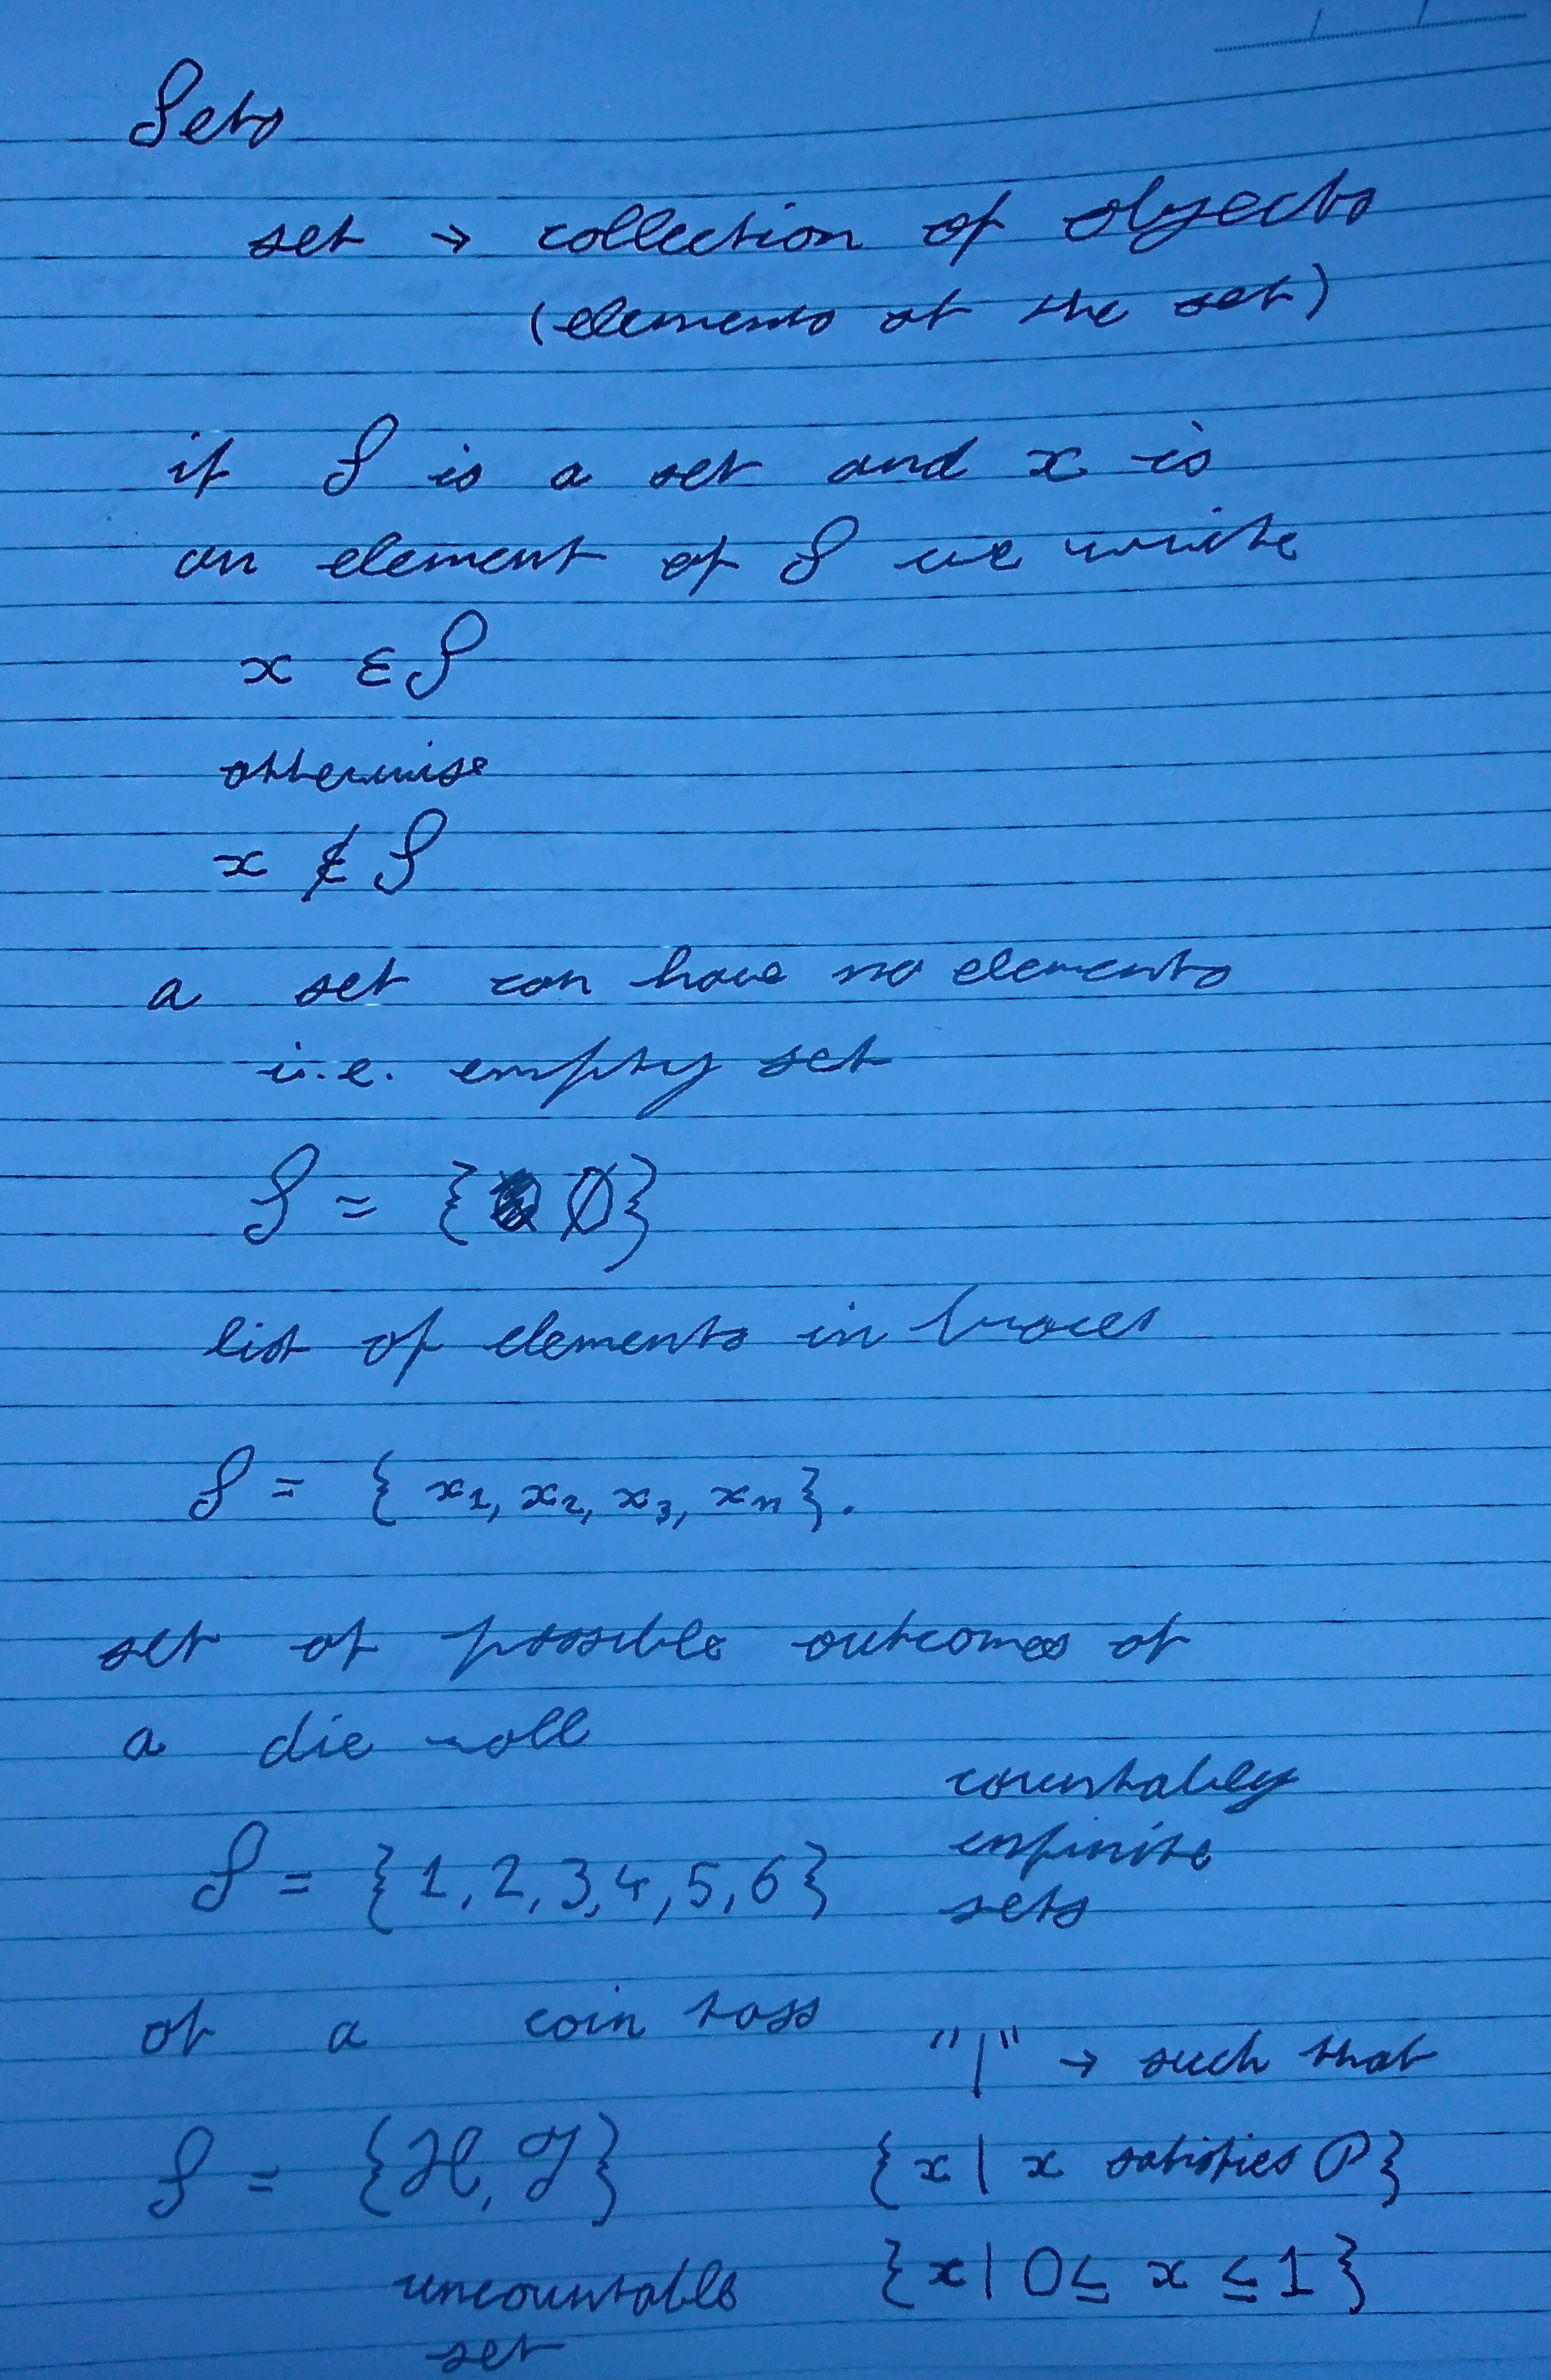 Sets
set → collection of objects
(elements of the set)
if S is a set and x is
an element of S we write
x ∈ S
otherwise
x ∉ S
a set can have no elements
i.e. empty set
S = { Ø}
list of elements in braces
S = { x1, x2, x3, xn}.
set of possible outcomes of
a die roll
S = {1, 2, 3, 4, 5, 6}
countably
infinite
sets
of a coin toss
S = {H, T}
"|" → such that
{x | x satisfies P}
{x | 0 ≤ x ≤ 1}
uncountable
set